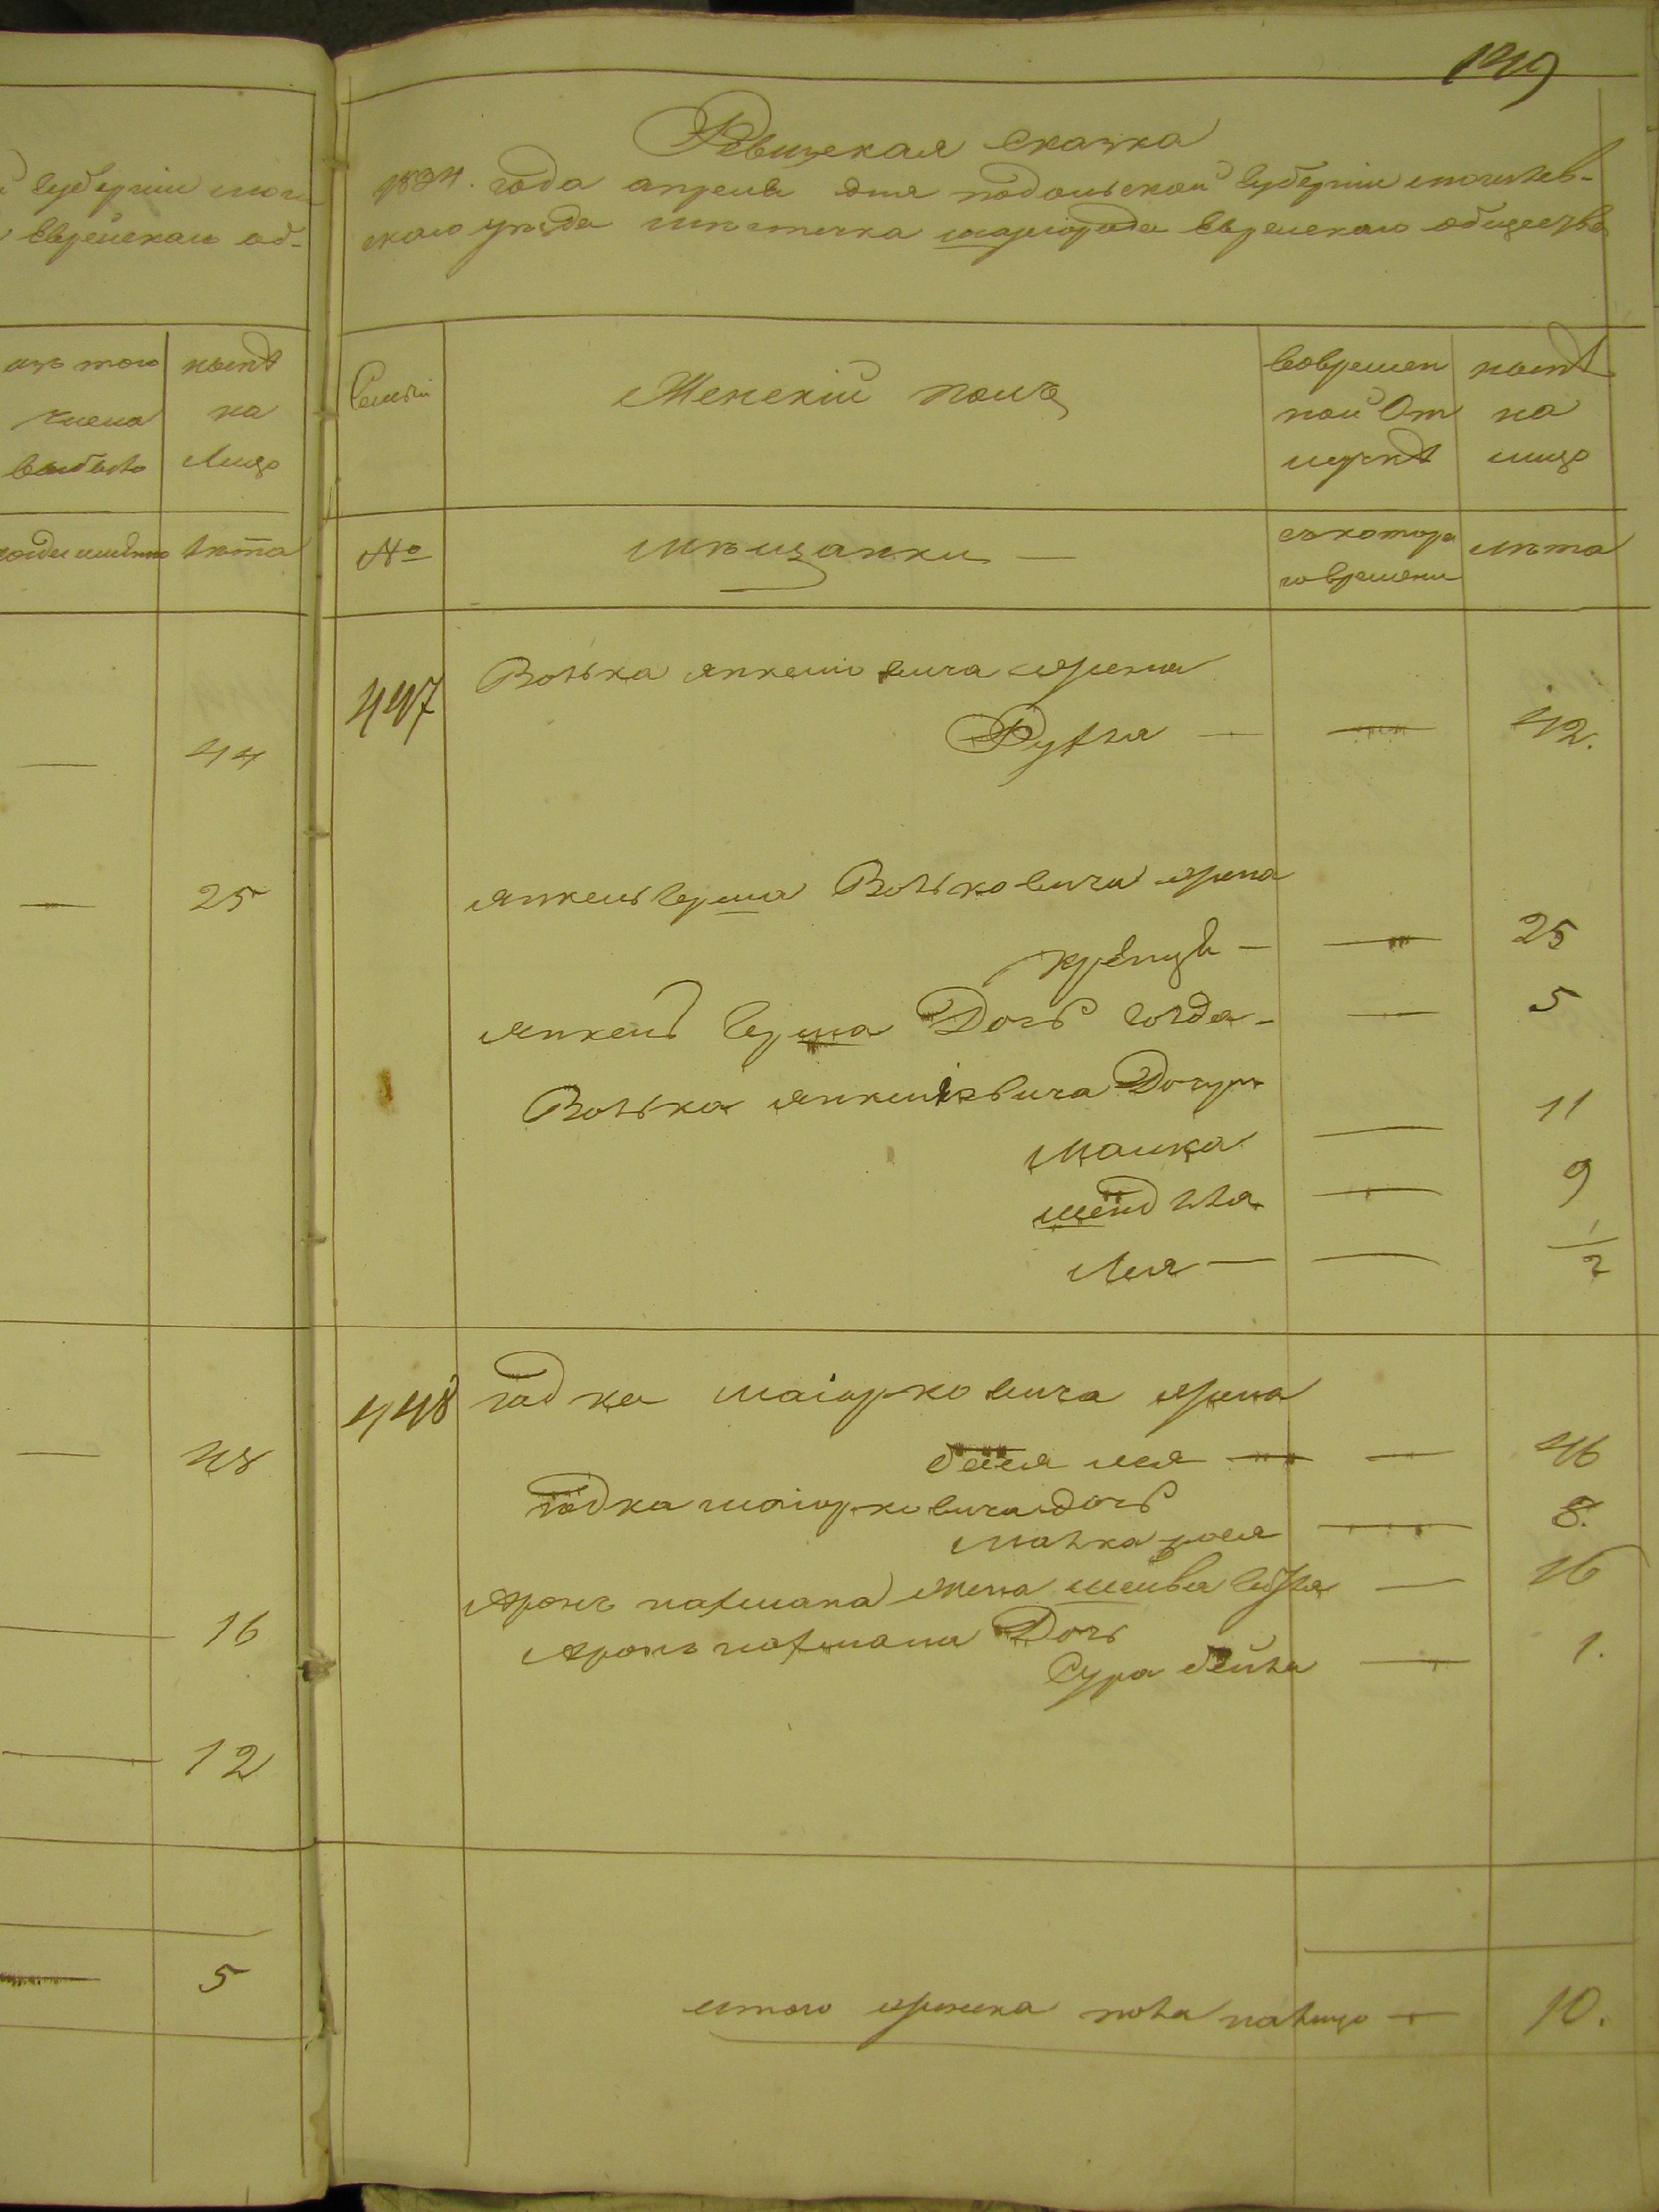 149
губерніи моги
Еврейскаго об-
изъ того
числа
выбыло
нынѣ
на
Лицо
когда именно
лѣта
44
25
48
16
12
5
Ревизская сказка
1834. года апреля дня подольской губерніи могилев-
скаго уѣзда мѣстечка шаргорода Еврейскаго общества
Семьи
Женскій полъ
вовремен
ной От
лучкѣ
нынѣ
на
лицо
№
мѣщанки —
съ котора
го времени
лѣта
447
Волька янкелиовича жена
Рухля — — 42.
янкель герша Вольковича жена
— — 25
янкель герша Дочь голда — — 5
Волька янкелевича Дочери
малка — 11
шейндля — 9
Лея — — 1/2
448
годка маіорковича жена
бейля лея — — 46
годка маіорковича дочь
малка роея — 8.
Аронъ нахмана жена шейва — 16
Аронъ нахмана Дочь
Сура бейла — 1.
итого женска пола налицо — 10.